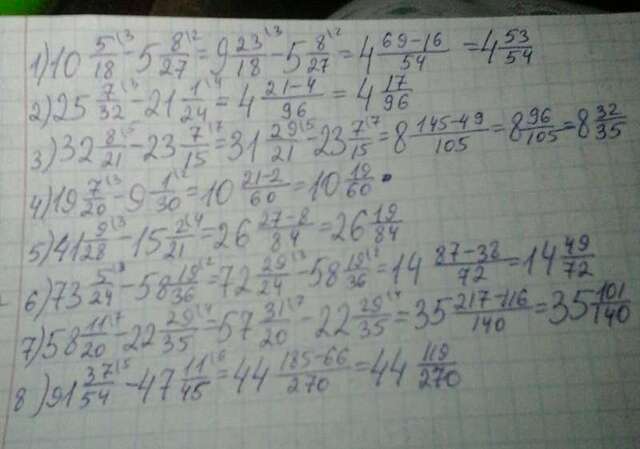 1) 10 5/18 \3 - 5 8/27 \2 = 9 23/18 \3 - 5 8/27 \2 = 4 69-16/54 = 4 53/54
2) 25 7/32 \3 - 21 1/24 \4 = 4 21-4/96 = 4 17/96
3) 32 8/21 \5 - 23 7/15 \7 = 31 29/21 \5 - 23 7/15 \7 = 8 145-49/105 = 8 96/105 = 8 32/35
4) 19 7/20 \3 - 9 1/30 \2 = 10 21-2/60 = 10 19/60
5) 41 9/28 \3 - 15 2/21 \4 = 26 27-8/84 = 26 19/84
6) 73 5/24 \3 - 58 19/36 \2 = 72 29/24 \3 - 58 19/36 \2 = 14 87-38/72 = 14 49/72
7) 58 11/20 \7 - 22 29/35 \4 = 57 31/20 \7 - 22 29/35 \4 = 35 217-116/140 = 35 101/140
8) 91 37/54 \5 - 47 11/45 \6 = 44 185-66/270 = 44 119/270